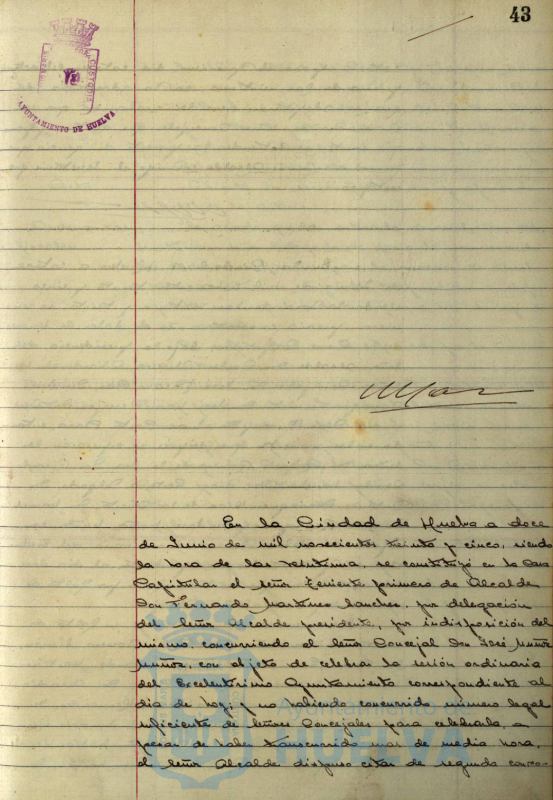 43
AYUNTAMIENTO DE HUELVA
En la Ciudad de Huelva a doce
de Junio de mil novecientos treinta y cinco, siendo
la hora de las veintiuna, se constituyó en la Casa
Capitular el señor Teniente primero de Alcalde
Don Fernando Martinez Sanchez, por delegación
del Señor Alcalde presidente, por indisposición del
mismo, concurriendo el Señor Concejal Don José Muñoz
Muñoz, con objeto de celebrar la sesión ordinaria
del Excelentísimo Ayuntamiento correspondiente al
dia de hoy; y no habiendo concurrido número legal
suficiente de Señores Concejales para celebrarla, a
pesar de haber transcurrido mas de media hora,
el Señor Alcalde dispuso citar de segunda convo-
Ayuntamiento de
HUELVA